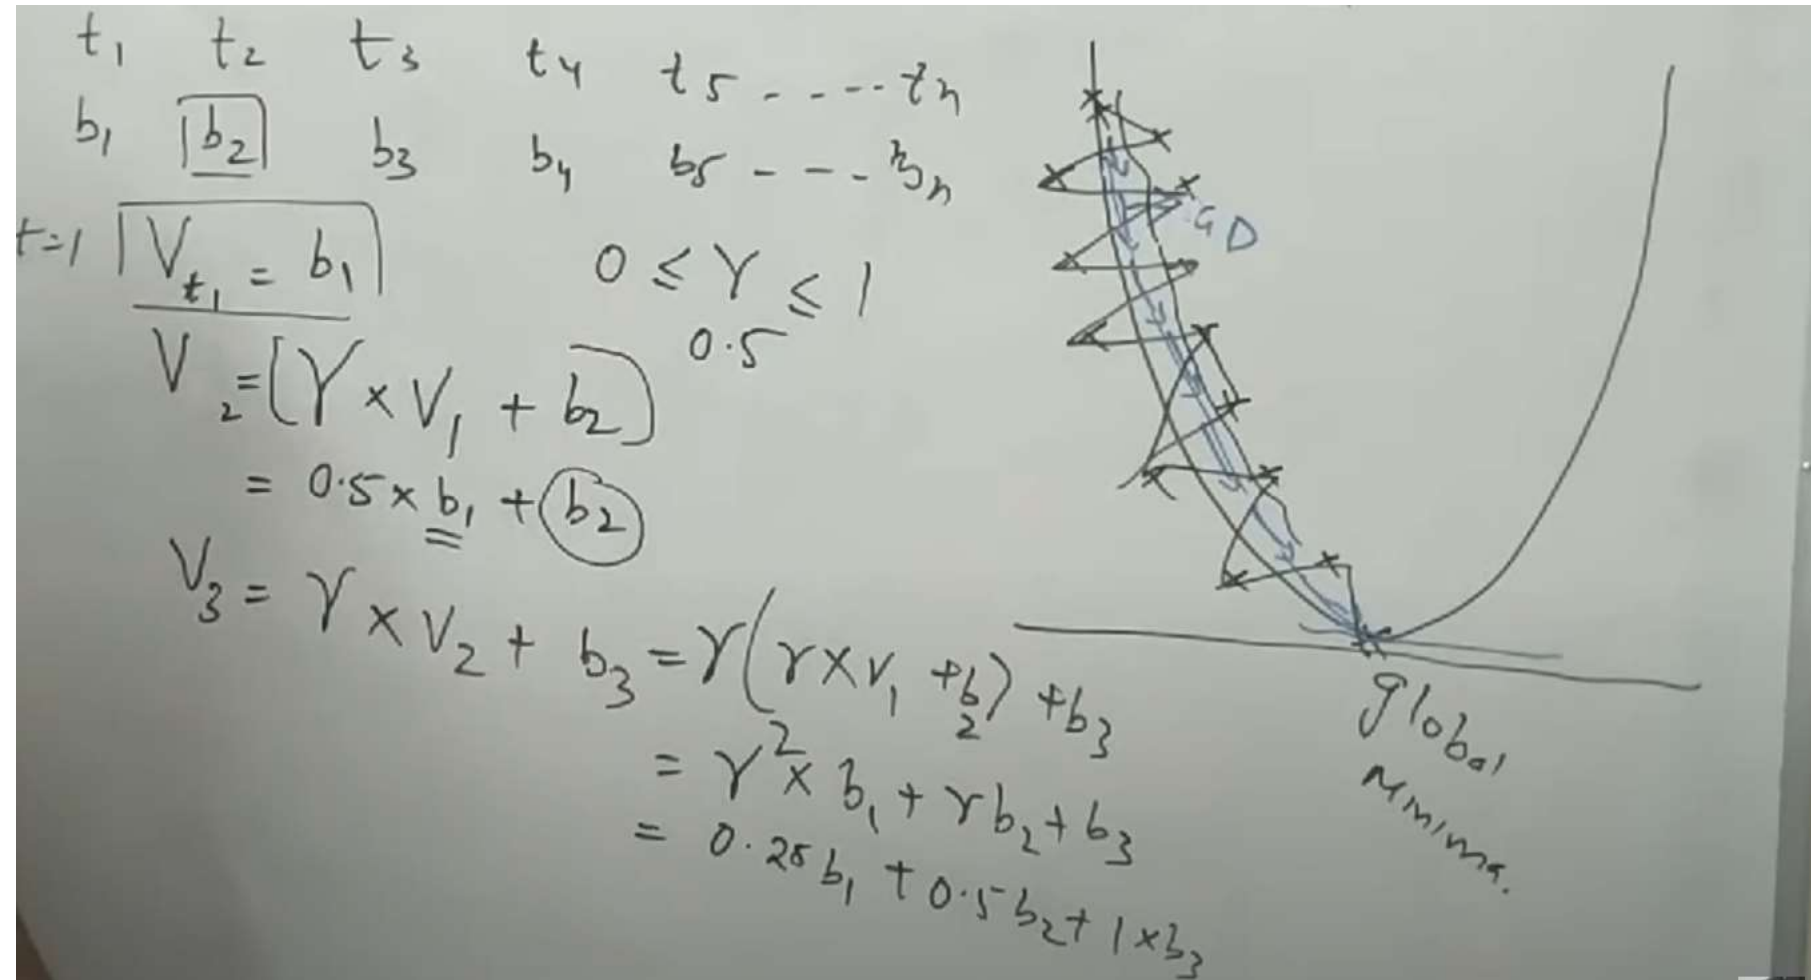 t₁ t₂ t₃ t₄ t₅ - - - - - tₙ
b₁ b₂ b₃ b₄ b₅ - - - - bₙ
t=1 V_t₁ = b₁
0 ≤ γ ≤ 1
0.5
V₂ = (γ × V₁ + b₂)
= 0.5 × b₁ + b₂
V₃ = γ × V₂ + b₃ = γ(γ × V₁ + b₂) + b₃
= γ² × b₁ + γb₂ + b₃
= 0.25 b₁ + 0.5 b₂ + 1 × b₃
GD
Global
Minima.